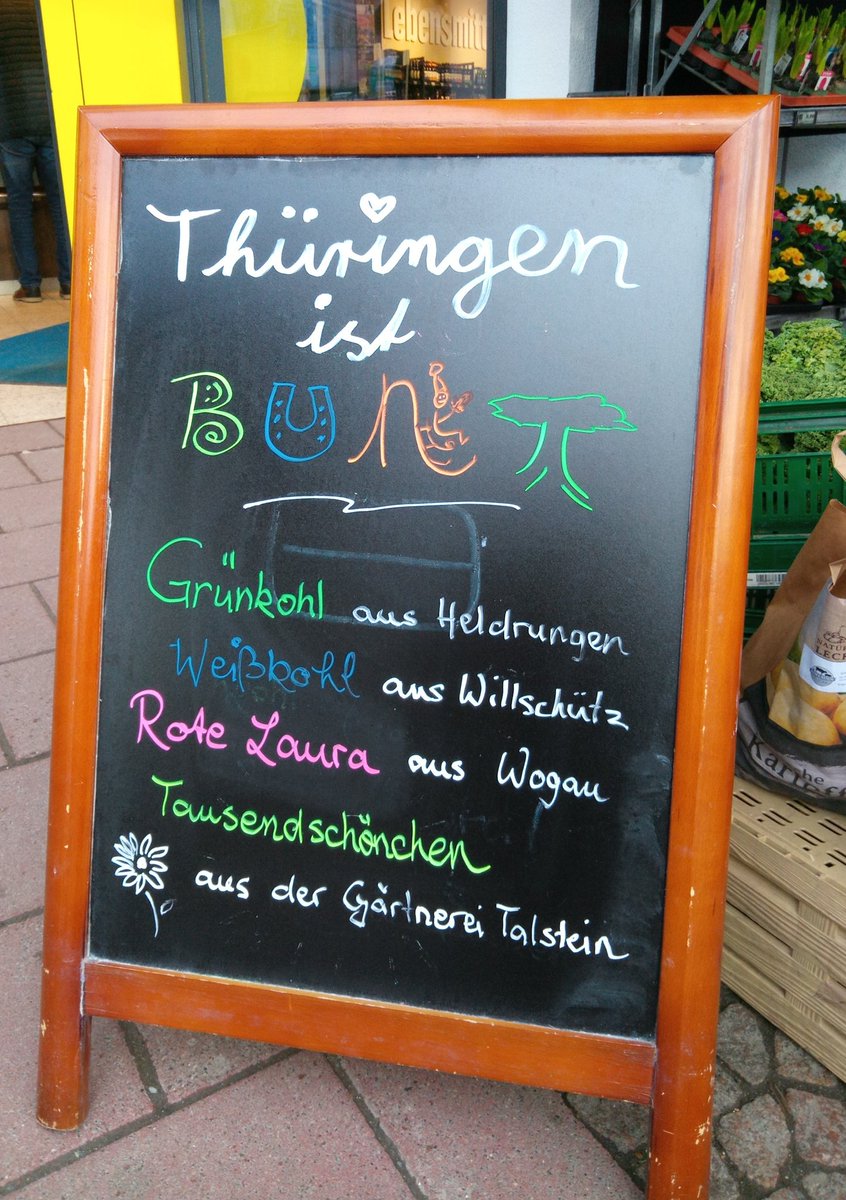 Lebensmitt
Thüringen
ist
BUNT
Grünkohl aus Heldrungen
Weißkohl aus Willschütz
Rote Laura aus Wogau
Tausendschönchen
aus der Gärtnerei Talstein
NATUR
LECK